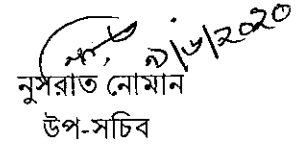 ৯/৬/২০২০
নুসরাত নোমান
উপ-সচিব